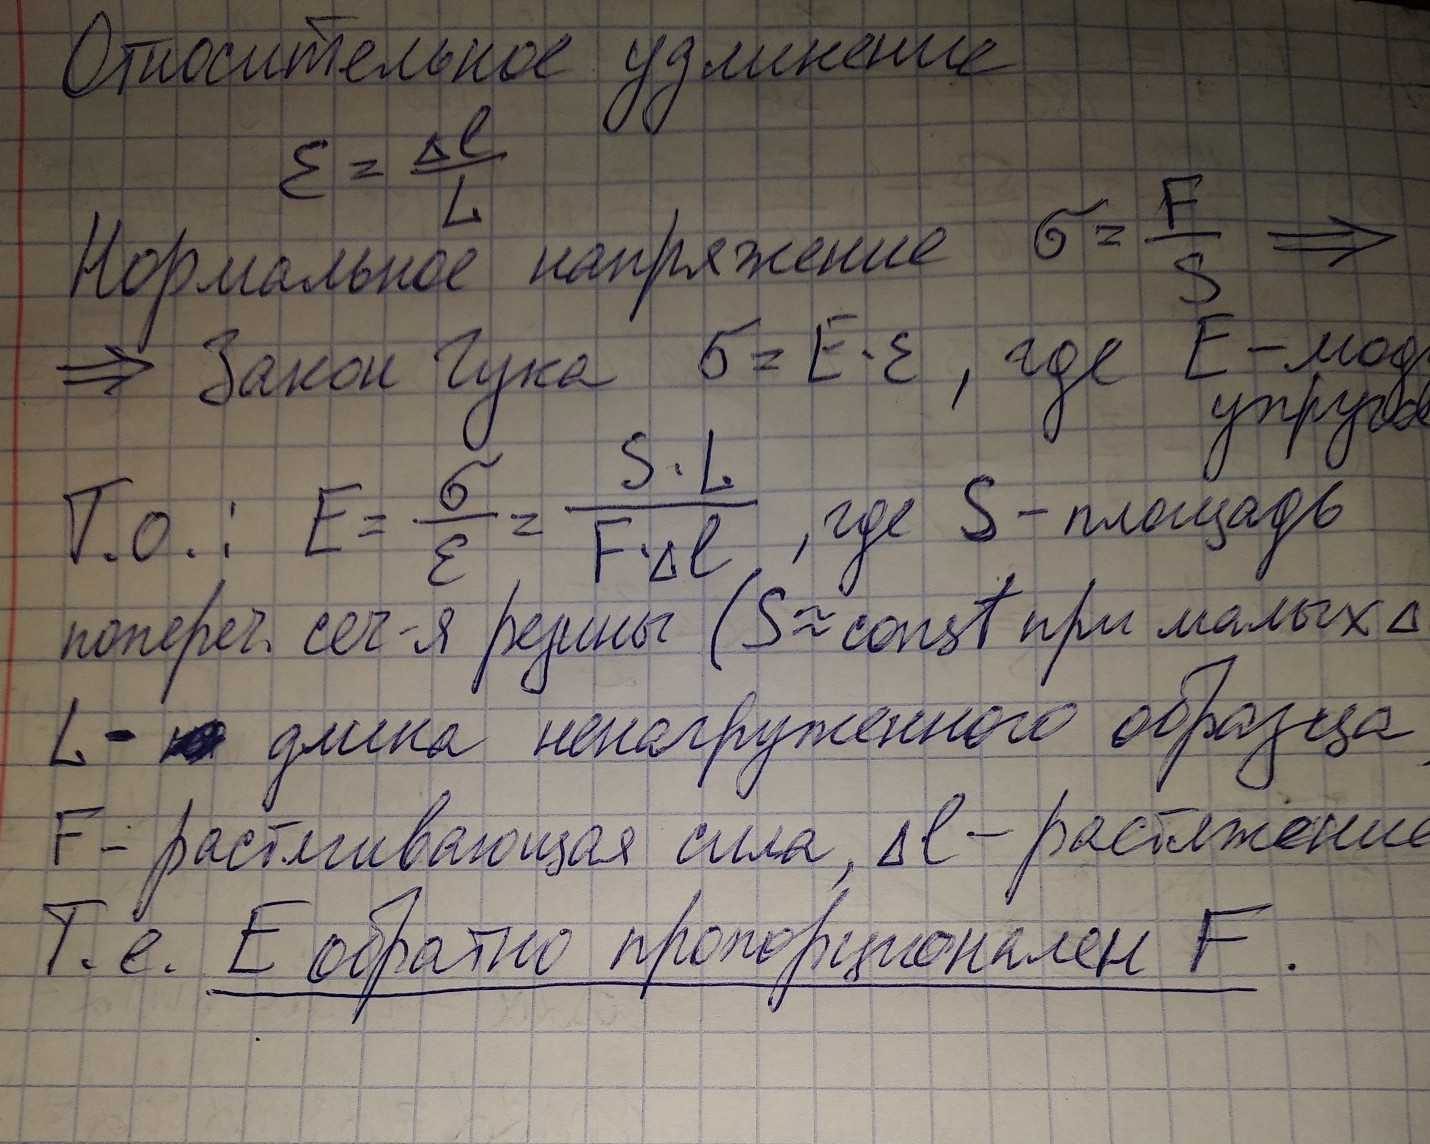 Относительное удлинение
ε = Δl / L
Нормальное напряжение σ = F / S ⇒
⇒ Закон Гука σ = E · ε , где E – мод
упруго
Т.о.: E = σ / ε = S · L / F · Δl , где S – площадь
попереч. сеч-я резины (S ≈ const при малых Δ
L – длина ненагруженного образца,
F – растягивающая сила, Δl – растяжение
Т.е. E обратно пропорционален F .